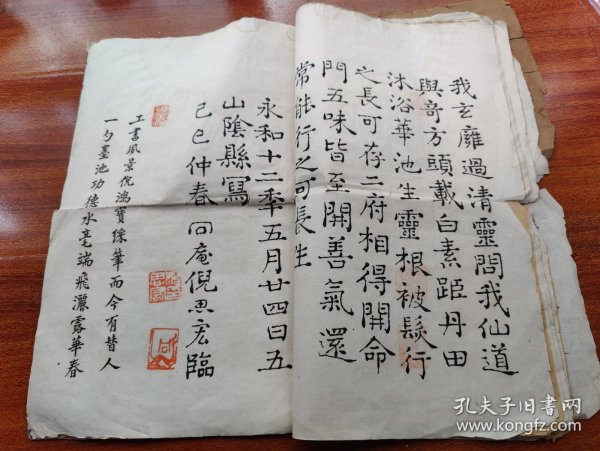 我玄雍過清靈問我仙道
與奇方頭載白素距丹田
沐浴華池生靈根被髮行
之長可存二府相得開命
門五味皆至開善氣還
常能行之可長生
永和十二年五月廿四日五
山陰縣寫
己巳仲春 同庵倪思宏臨
工書風景倪鴻寶珠華而今有替人
一勺墨池功德水毫端飛灑露華春
孔夫子旧书网
www.kongfz.com